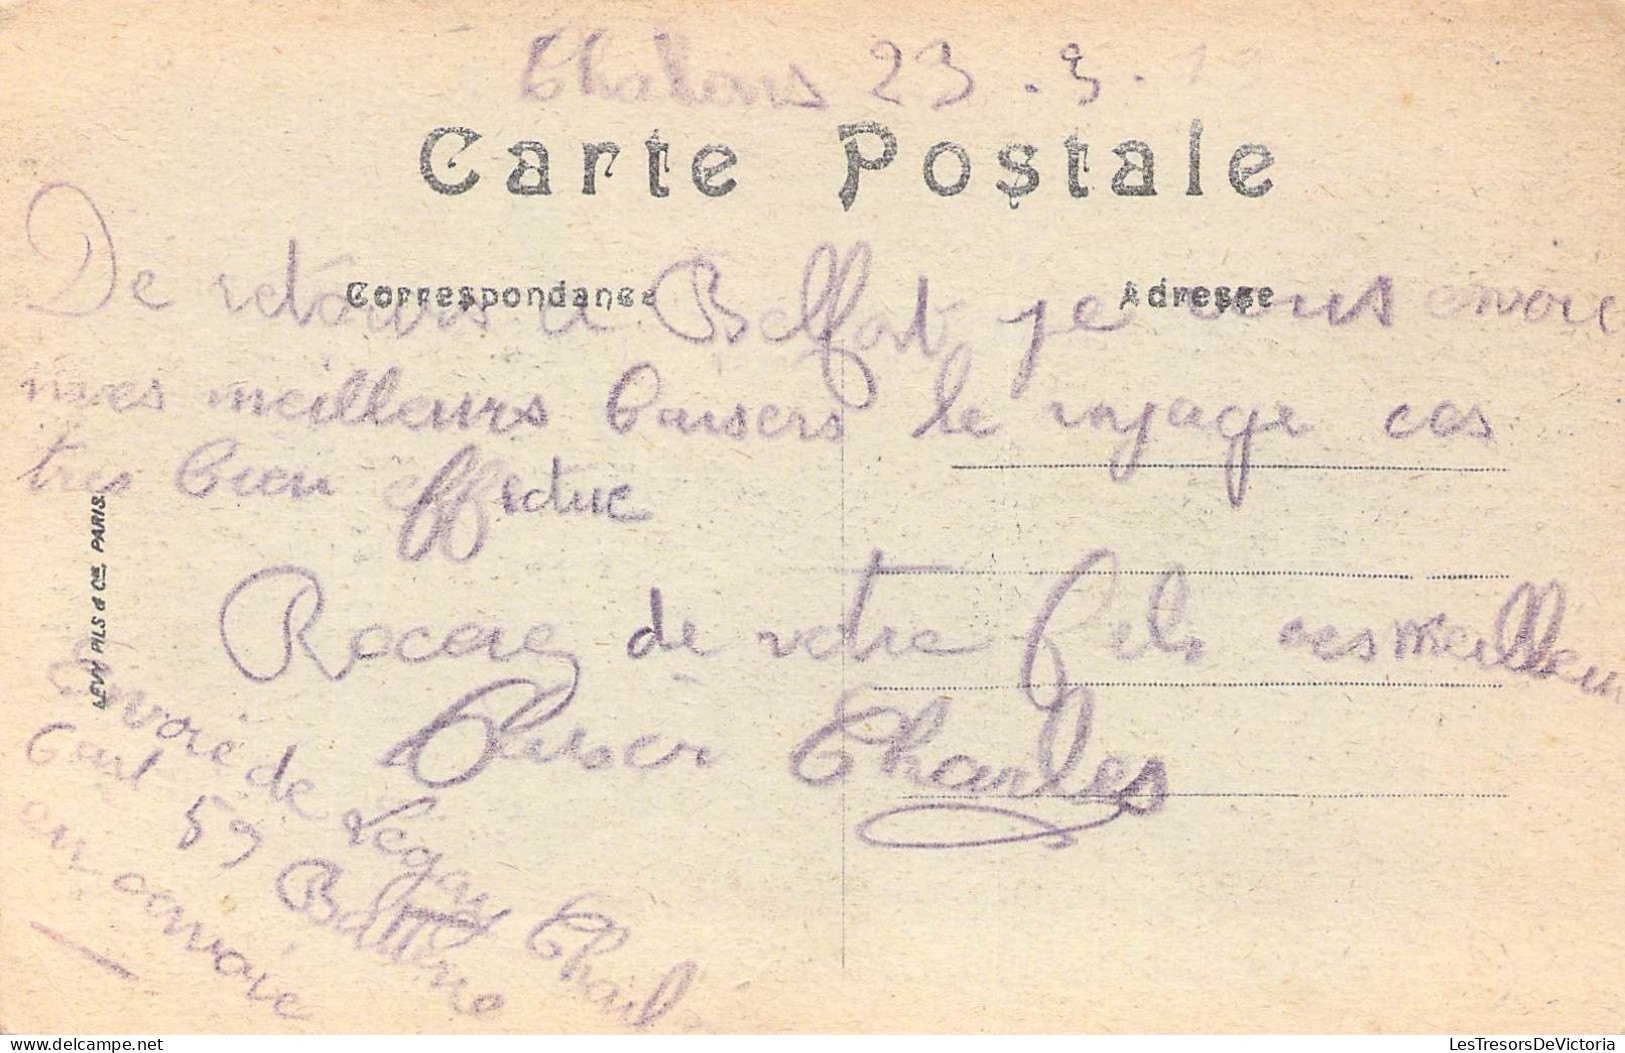 Chalons 23.3.19
Carte Postale
Correspondance
Adresse
De retours a Belfort je vous envoie
mes meilleurs baisers le voyage ces
tres bien effectue
Recevez de votre fils ces meilleurs
baiser Charles
Envoie de Légay Charles
59 Batterie
en convoie
LEVY FILS & Cie, PARIS.
delcampe.net
LesTresorsDeVictoria